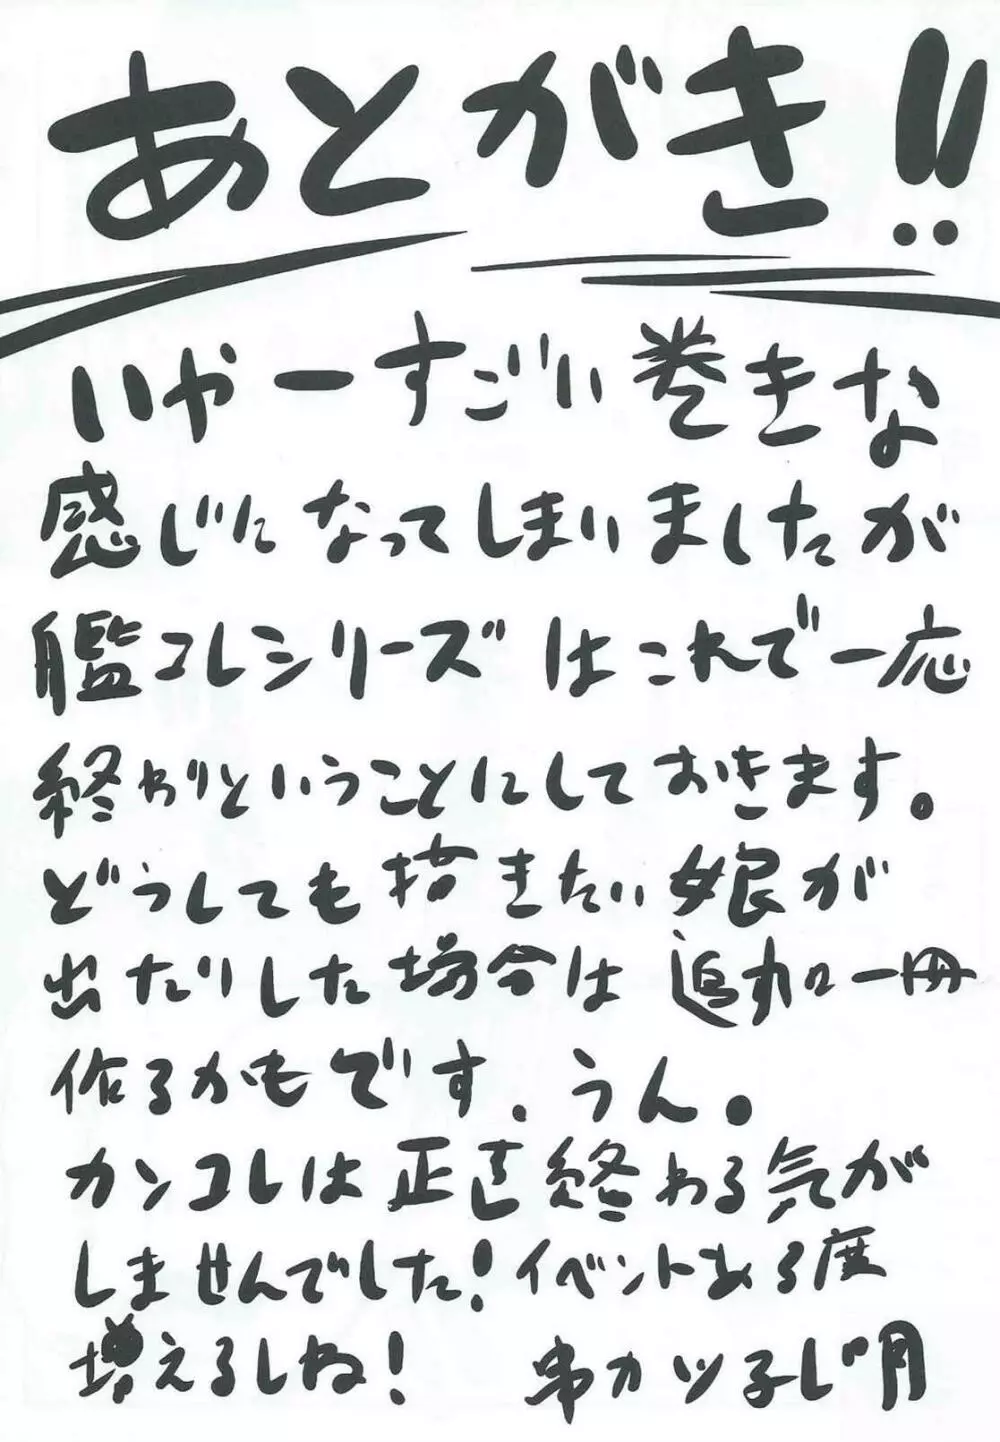 あとがき!!
いやーすごい巻きな
感じになってしまいましたが
艦コレシリーズはこれで一応
終わりということにしておきます。
どうしても描きたい娘が
出たりした場合は追加一冊
作るかもです. うん。
カンコレは正直終わる気が
しませんでした!イベントある度
増えるしね! 串カツ子じ月